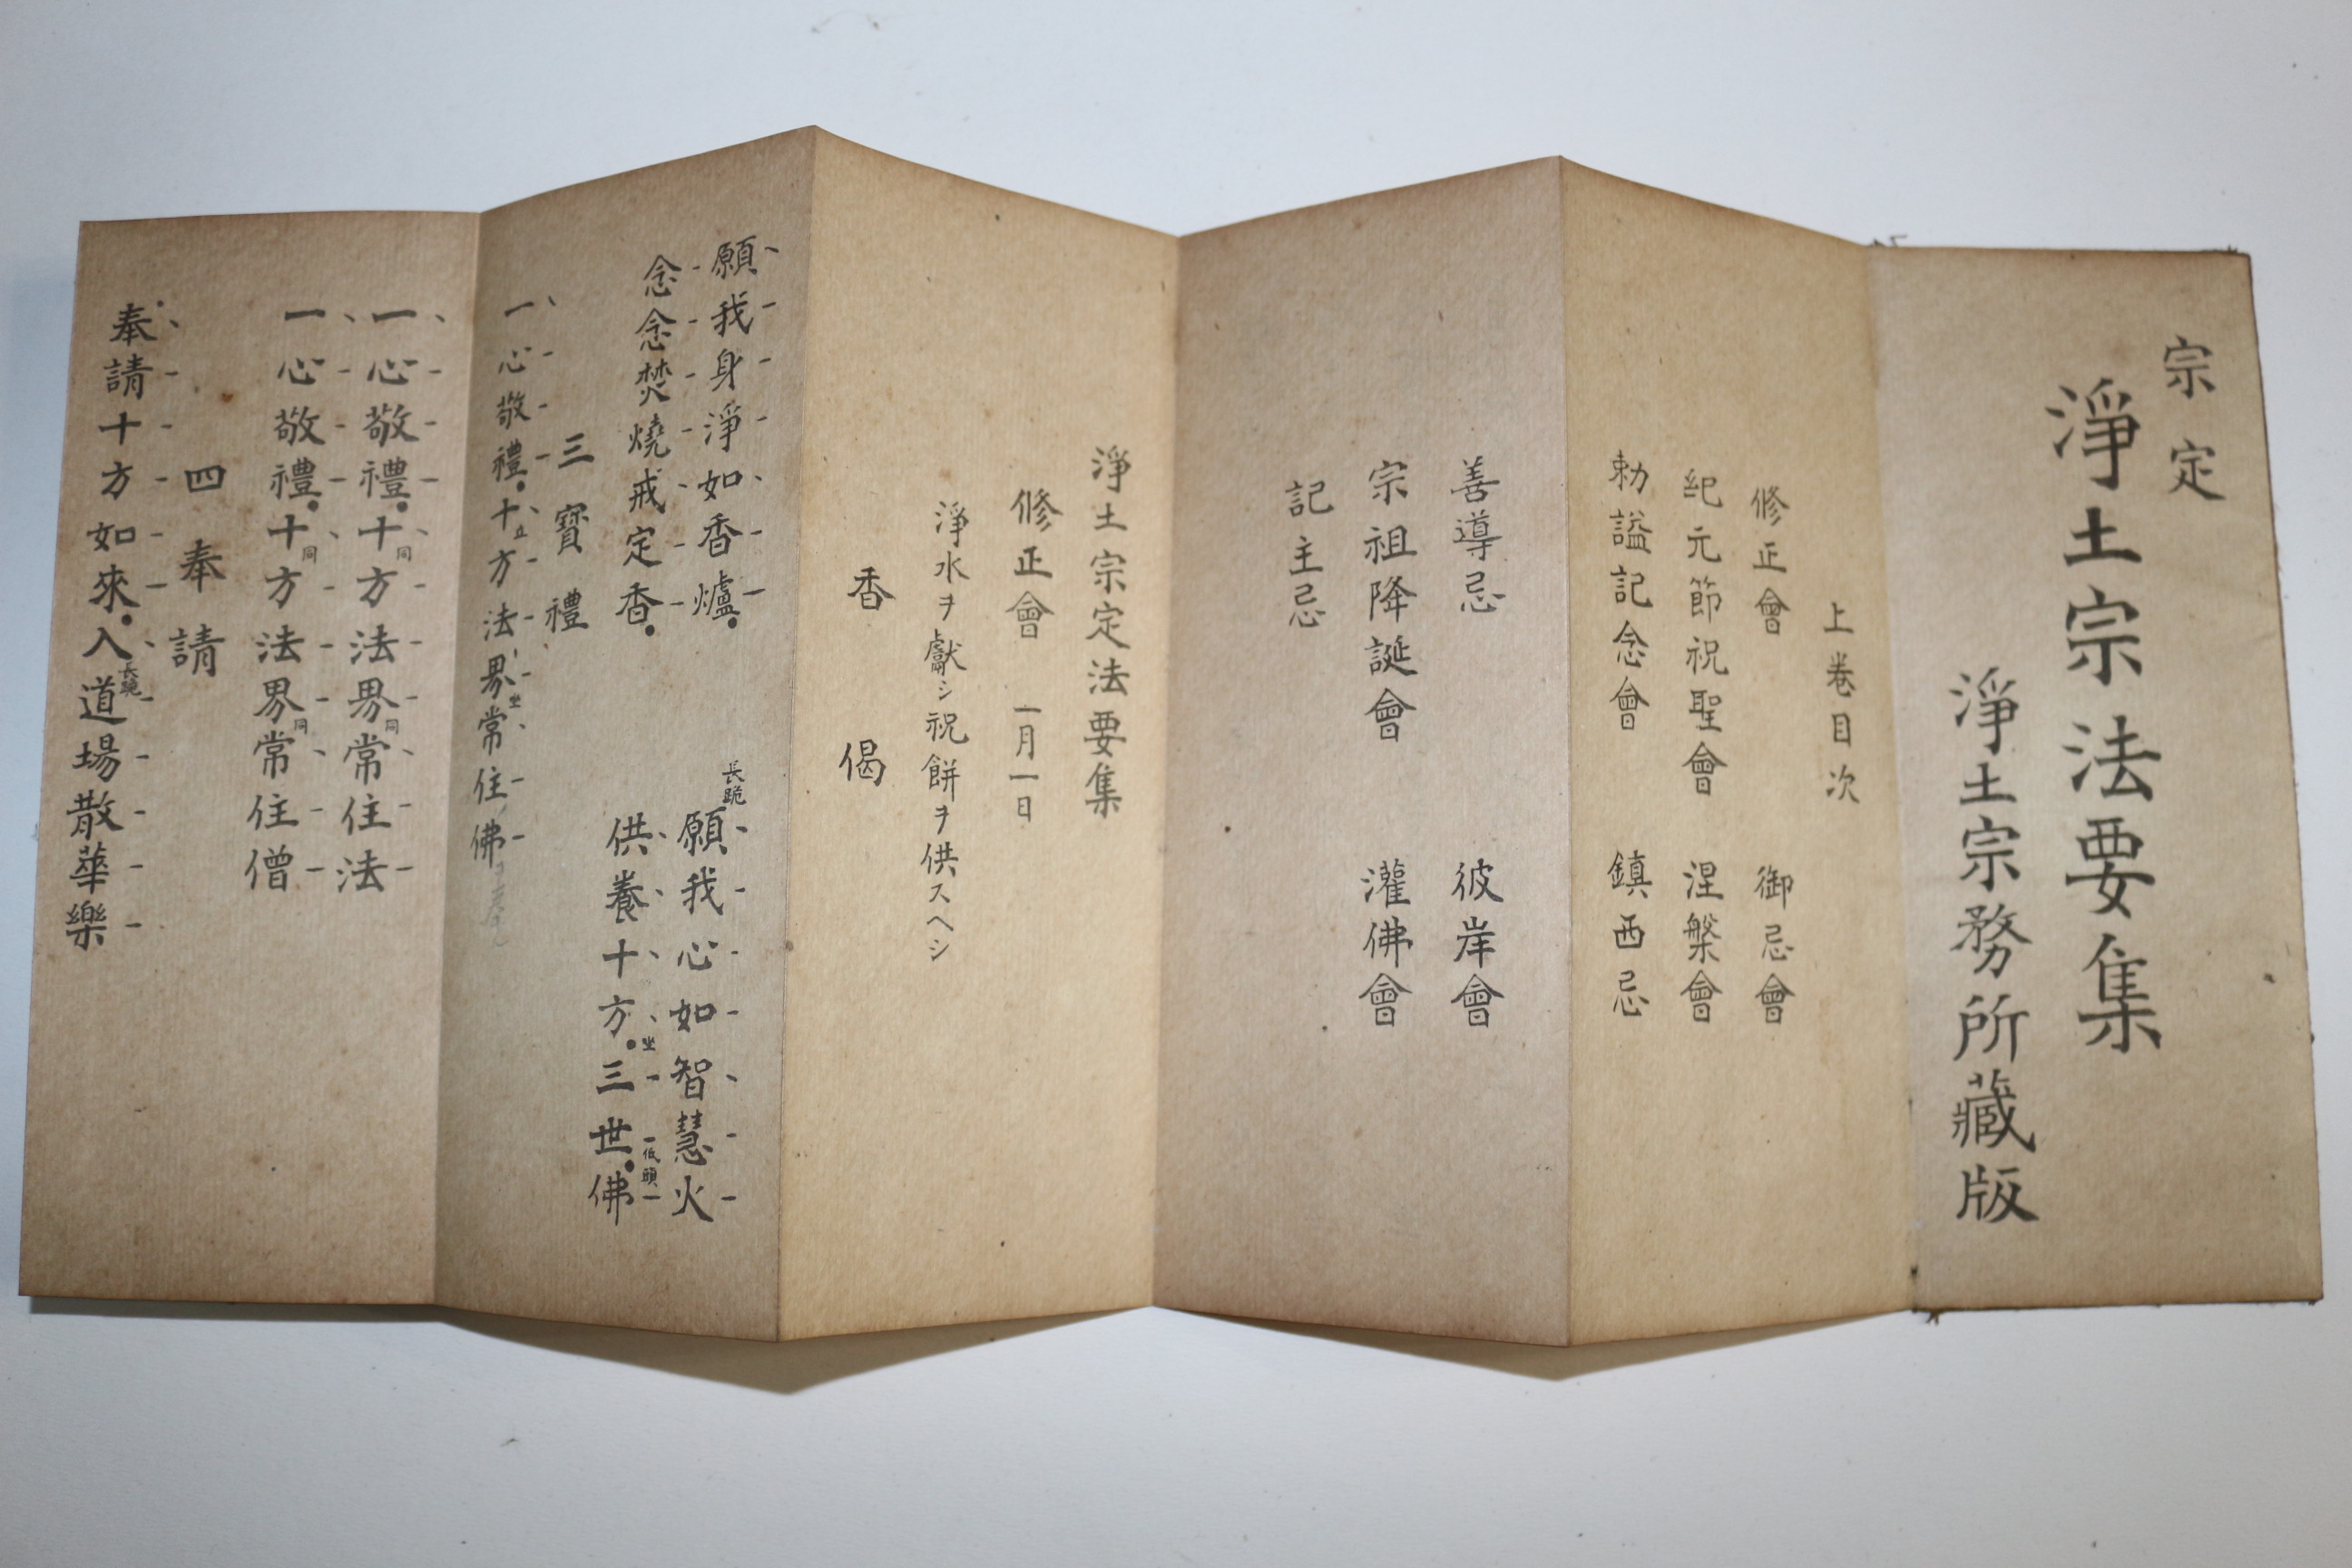 宗定
淨土宗法要集
淨土宗務所藏版
上卷目次
修正會 御忌會
紀元節祝聖會 涅槃會
勅諡記念會 鎮西忌
善導忌 彼岸會
宗祖降誕會 灌佛會
記主忌
淨土宗定法要集
修正會 一月一日
淨水ヲ獻シ祝餅ヲ供スヘシ
香偈
願我身淨如香爐 長跪 願我心如智慧火
念念焚燒戒定香 供養十方 坐 三世 低頭 佛
三寶禮
一心敬禮十 立 方法界 坐 常住佛
一心敬禮十 同 方法界 同 常住法
一心敬禮十 同 方法界 同 常住僧
四奉請
奉請十方如來入 長跪 道場散華樂